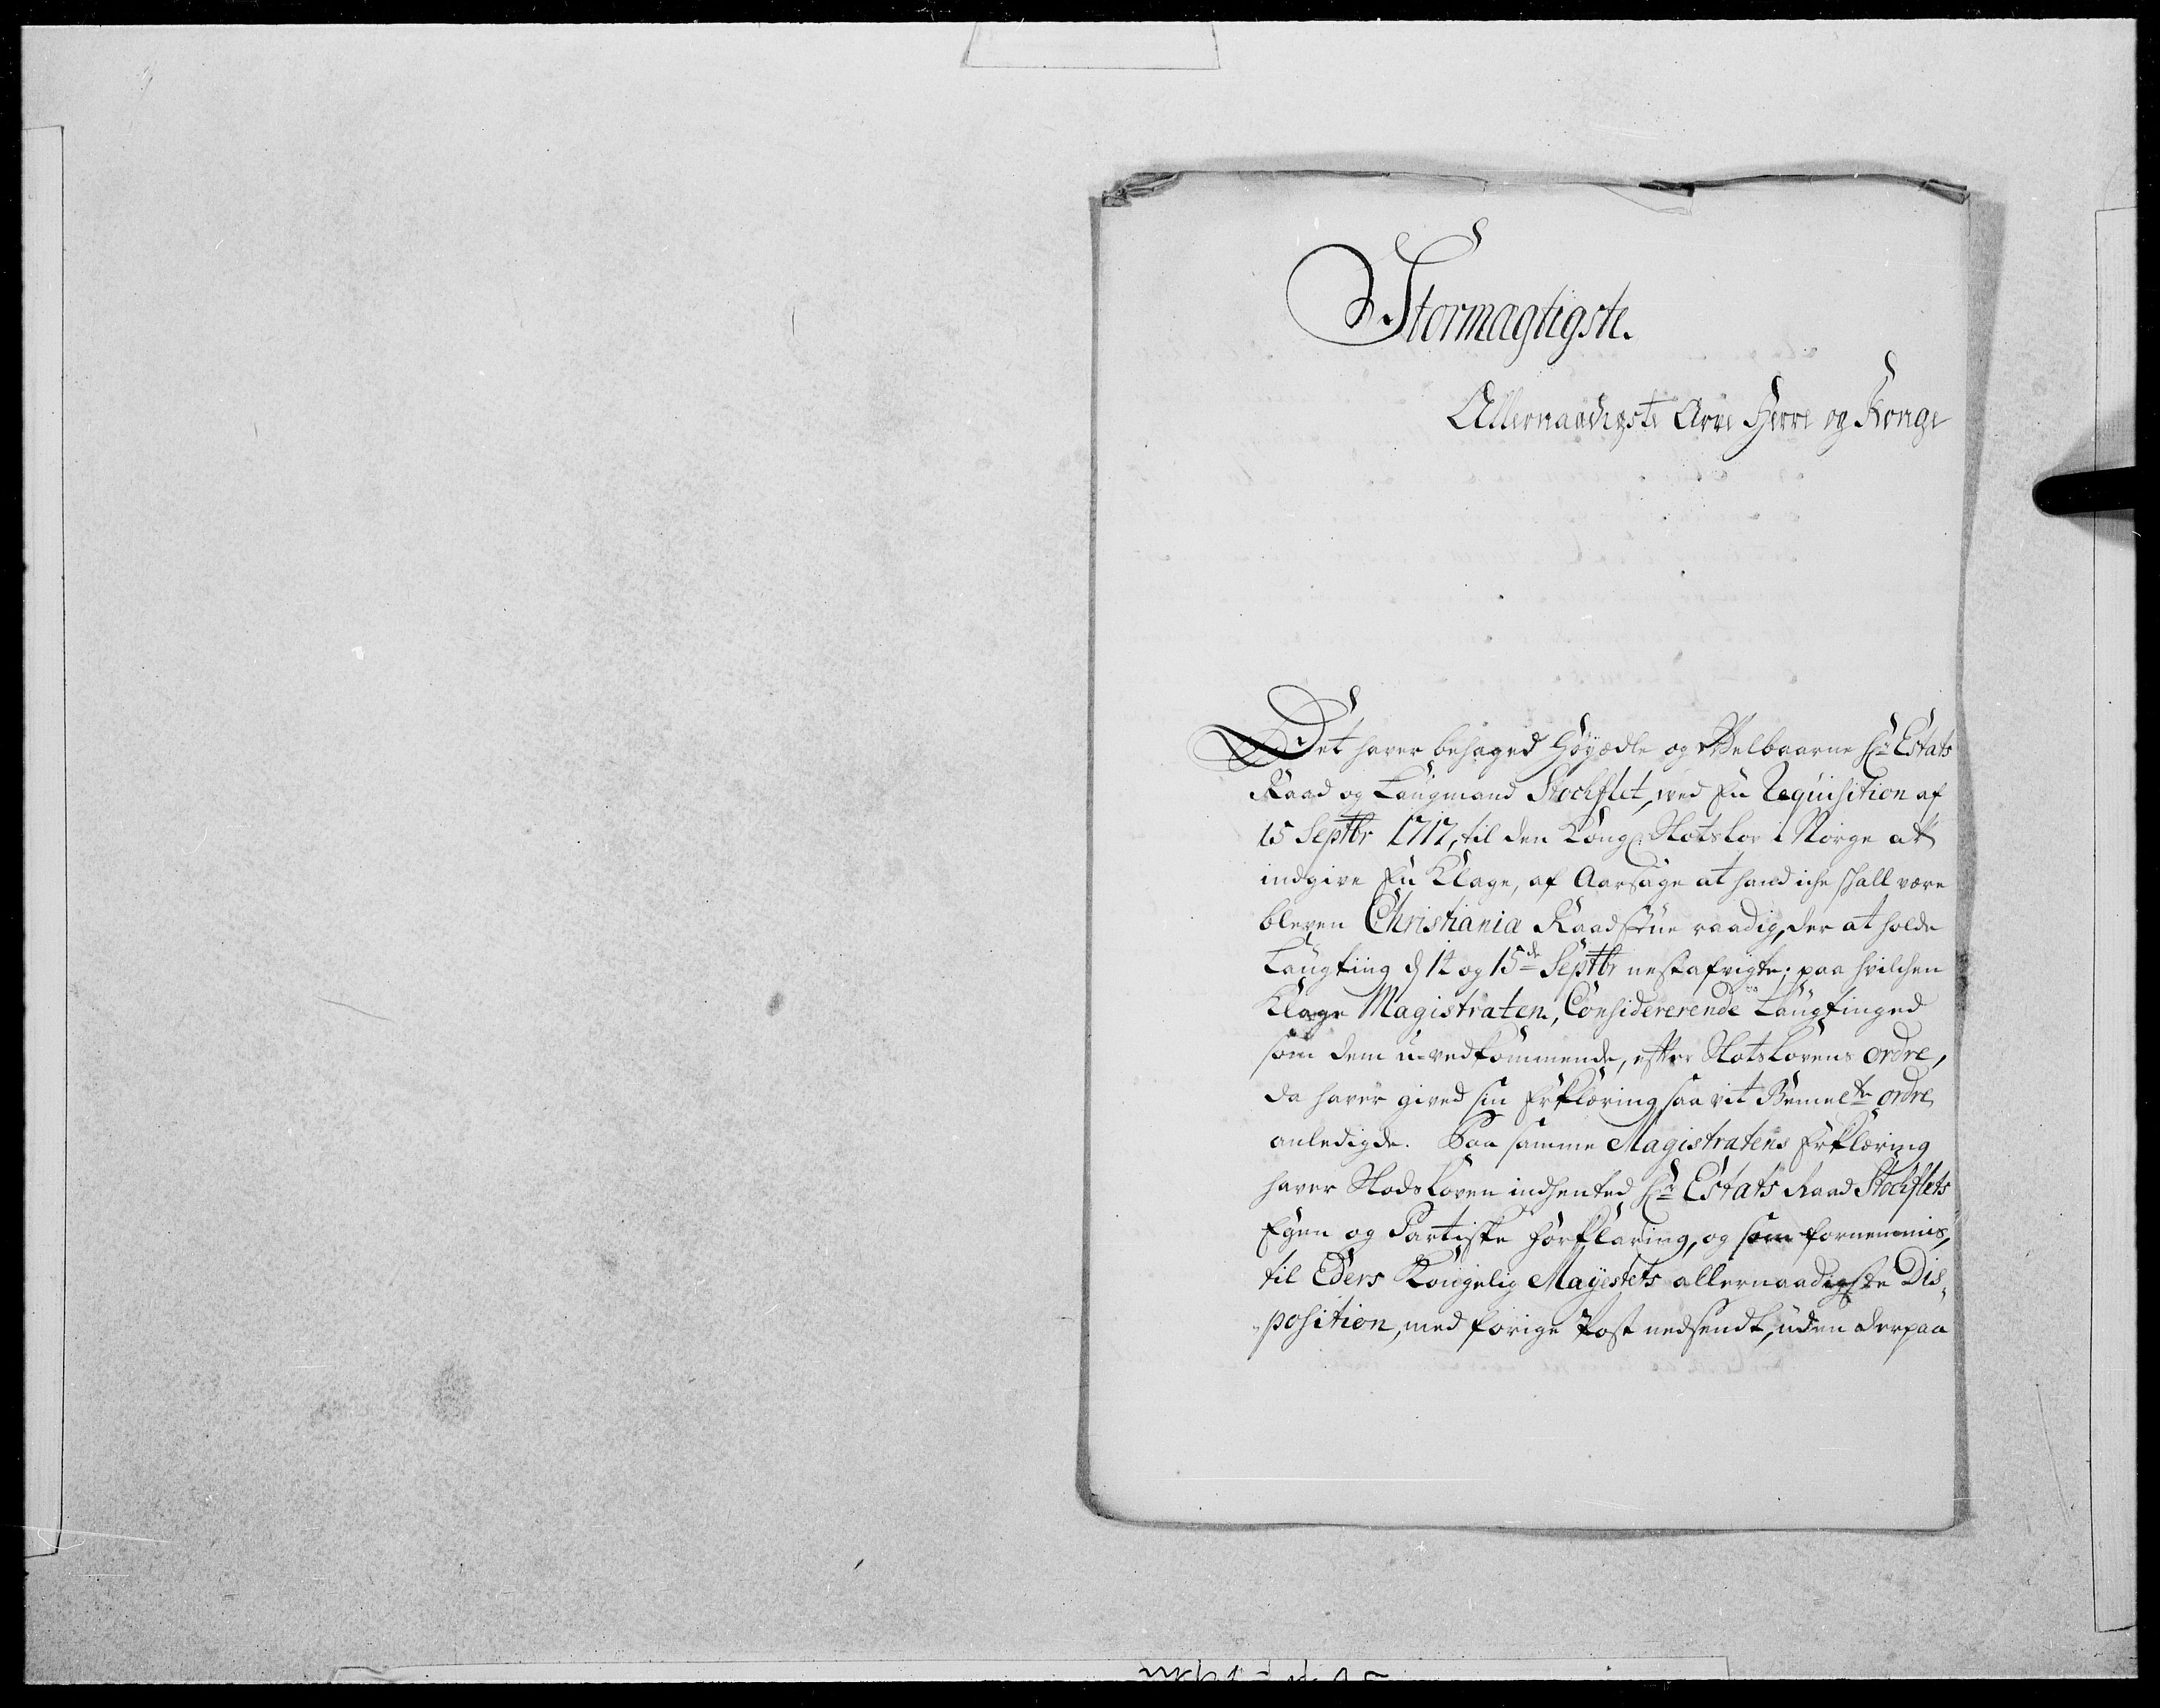 Stormagtigste.
Allernaadigste Arve Herre og Konge
Det haver behaged Höyædle og Welbaarne Hr Estats
Raad og Laugmand Stochflet, ved En Requisition af
15 Septbr 1717, til den Kongl: Slotslov i Norge at
indgive En Klage, af Aarsage at hand iche skall være
bleven Christiania Raadstue raadig, der at holde
Laugting d 14 og 15de Septbr nestafvigte; paa hvilchen
Klage Magistraten, Considererende Laugtinged
som dem u-vedkommende, efter Slotslovens ordre,
da haver gived sin Erklæring saa vit Bemelte ordre
anledigde. Paa samme Magistratens Erklæring
haver Slodsloven indhented Hr Estats Raad Stochflets
Egen og Partiske Forklaring, og som fornemmis,
til Eders Kongelig Mayestets allernaadigste Dis,
position, med forige Post nedsendt, uden derpaa